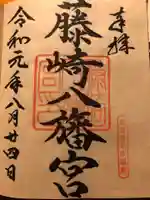 奉拝
藤崎八旛宮
令和元年八月廿四日